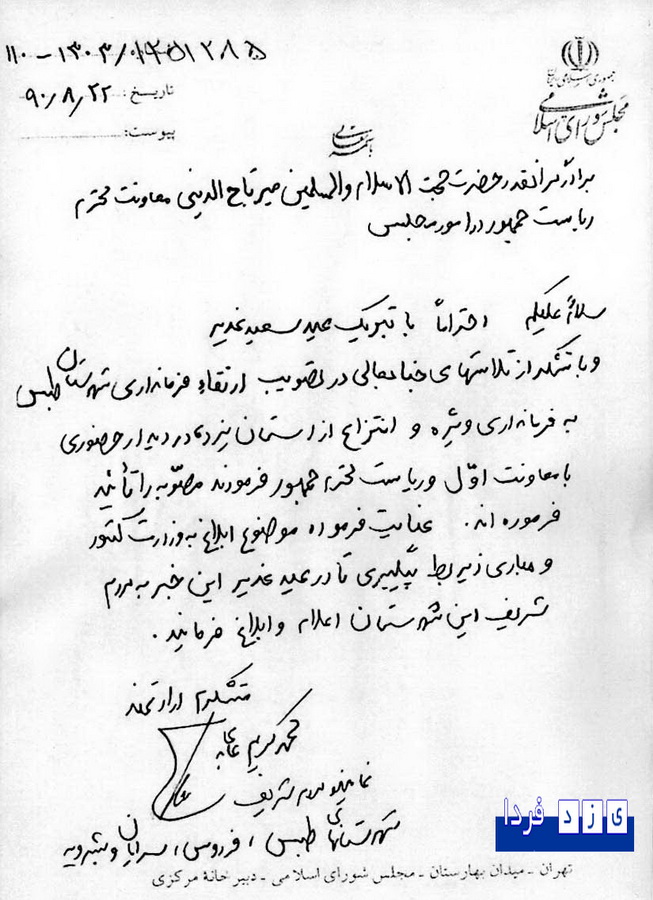 جمهوری اسلامی ایران
مجلس شورای اسلامی
۱۱۰-۱۳۰۳/۰۱۲۵۱۲۸۵
تاریخ: ۹۰/۸/۲۲
پیوست:
بسمه تعالی
برادر گرانقدر حضرت حجت الاسلام والمسلمین میرتاج الدینی معاونت محترم
ریاست جمهور در امور مجلس
سلام علیکم احتراماً با تبریک عید سعید غدیر
و با تشکر از تلاشهای جنابعالی در تصویب ارتقاء فرمانداری شهرستان طبس
به فرمانداری ویژه و انتزاع از استان یزد در دیدار حضوری
با معاونت اوّل و ریاست محترم جمهور فرمودند مصوّبه را تأیید
فرموده اند. عنایت فرموده موضوع ابلاغ به وزارت کشور
و مبادی ذیربط پیگیری تا در عید غدیر این خبر به مردم
شریف این شهرستان اعلام و ابلاغ فرمایند.
متشکرم ارادتمند
محمد کریم عابدی
نماینده مردم شریف
شهرستانهای طبس، فردوس، سرایان و بشرویه
تهران - میدان بهارستان - مجلس شورای اسلامی - دبیرخانهٔ مرکزی
یزد فردا